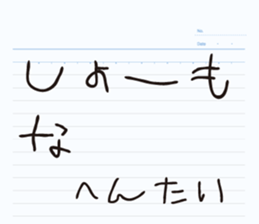 No.
Date
しょーも
な
へんたい